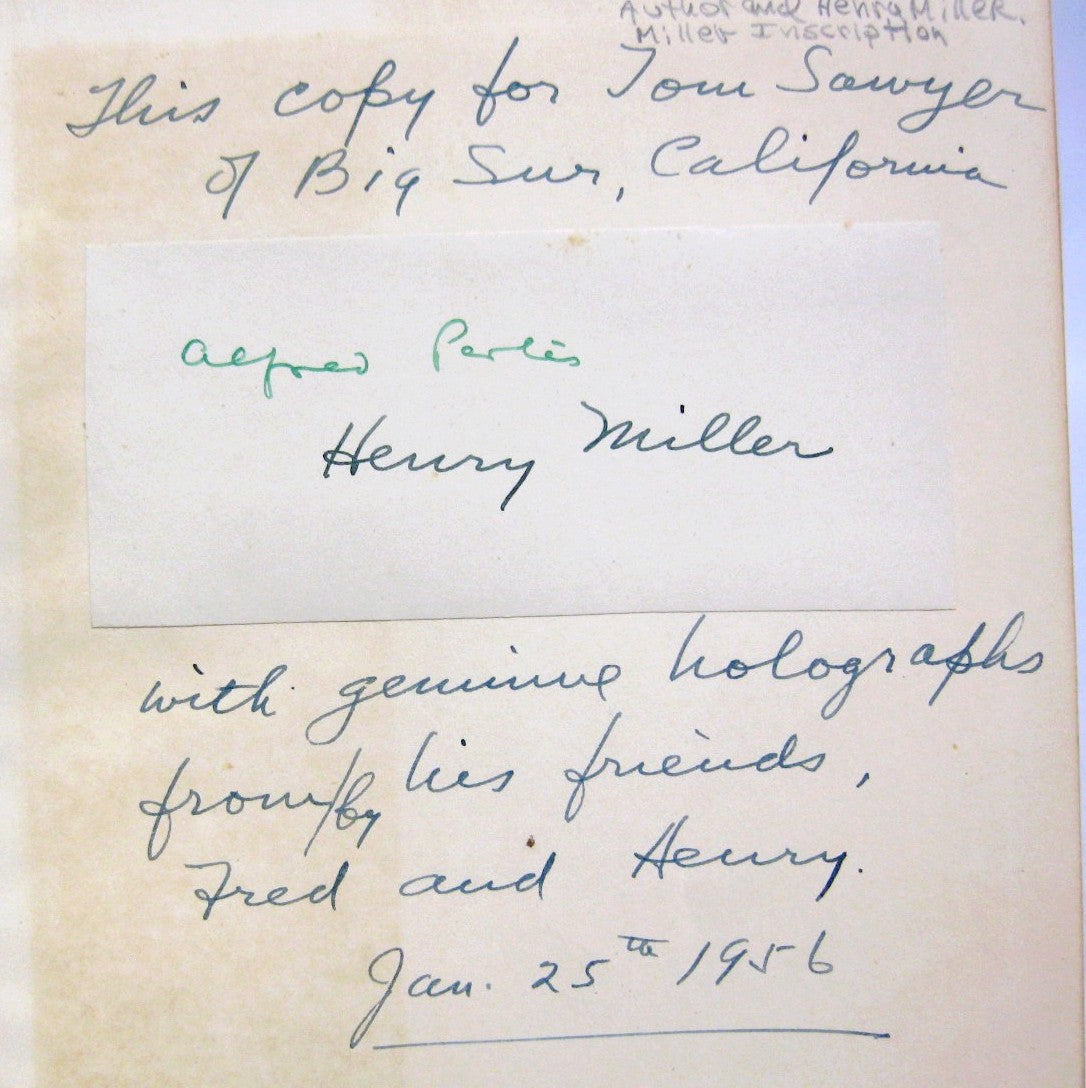 Author and Henry Miller.
Miller Inscription
This copy for Tom Sawyer
of Big Sur, California
Alfred Perlès
Henry Miller
with genuine holographs
from/by his friends,
Fred and Henry.
Jan. 25th 1956